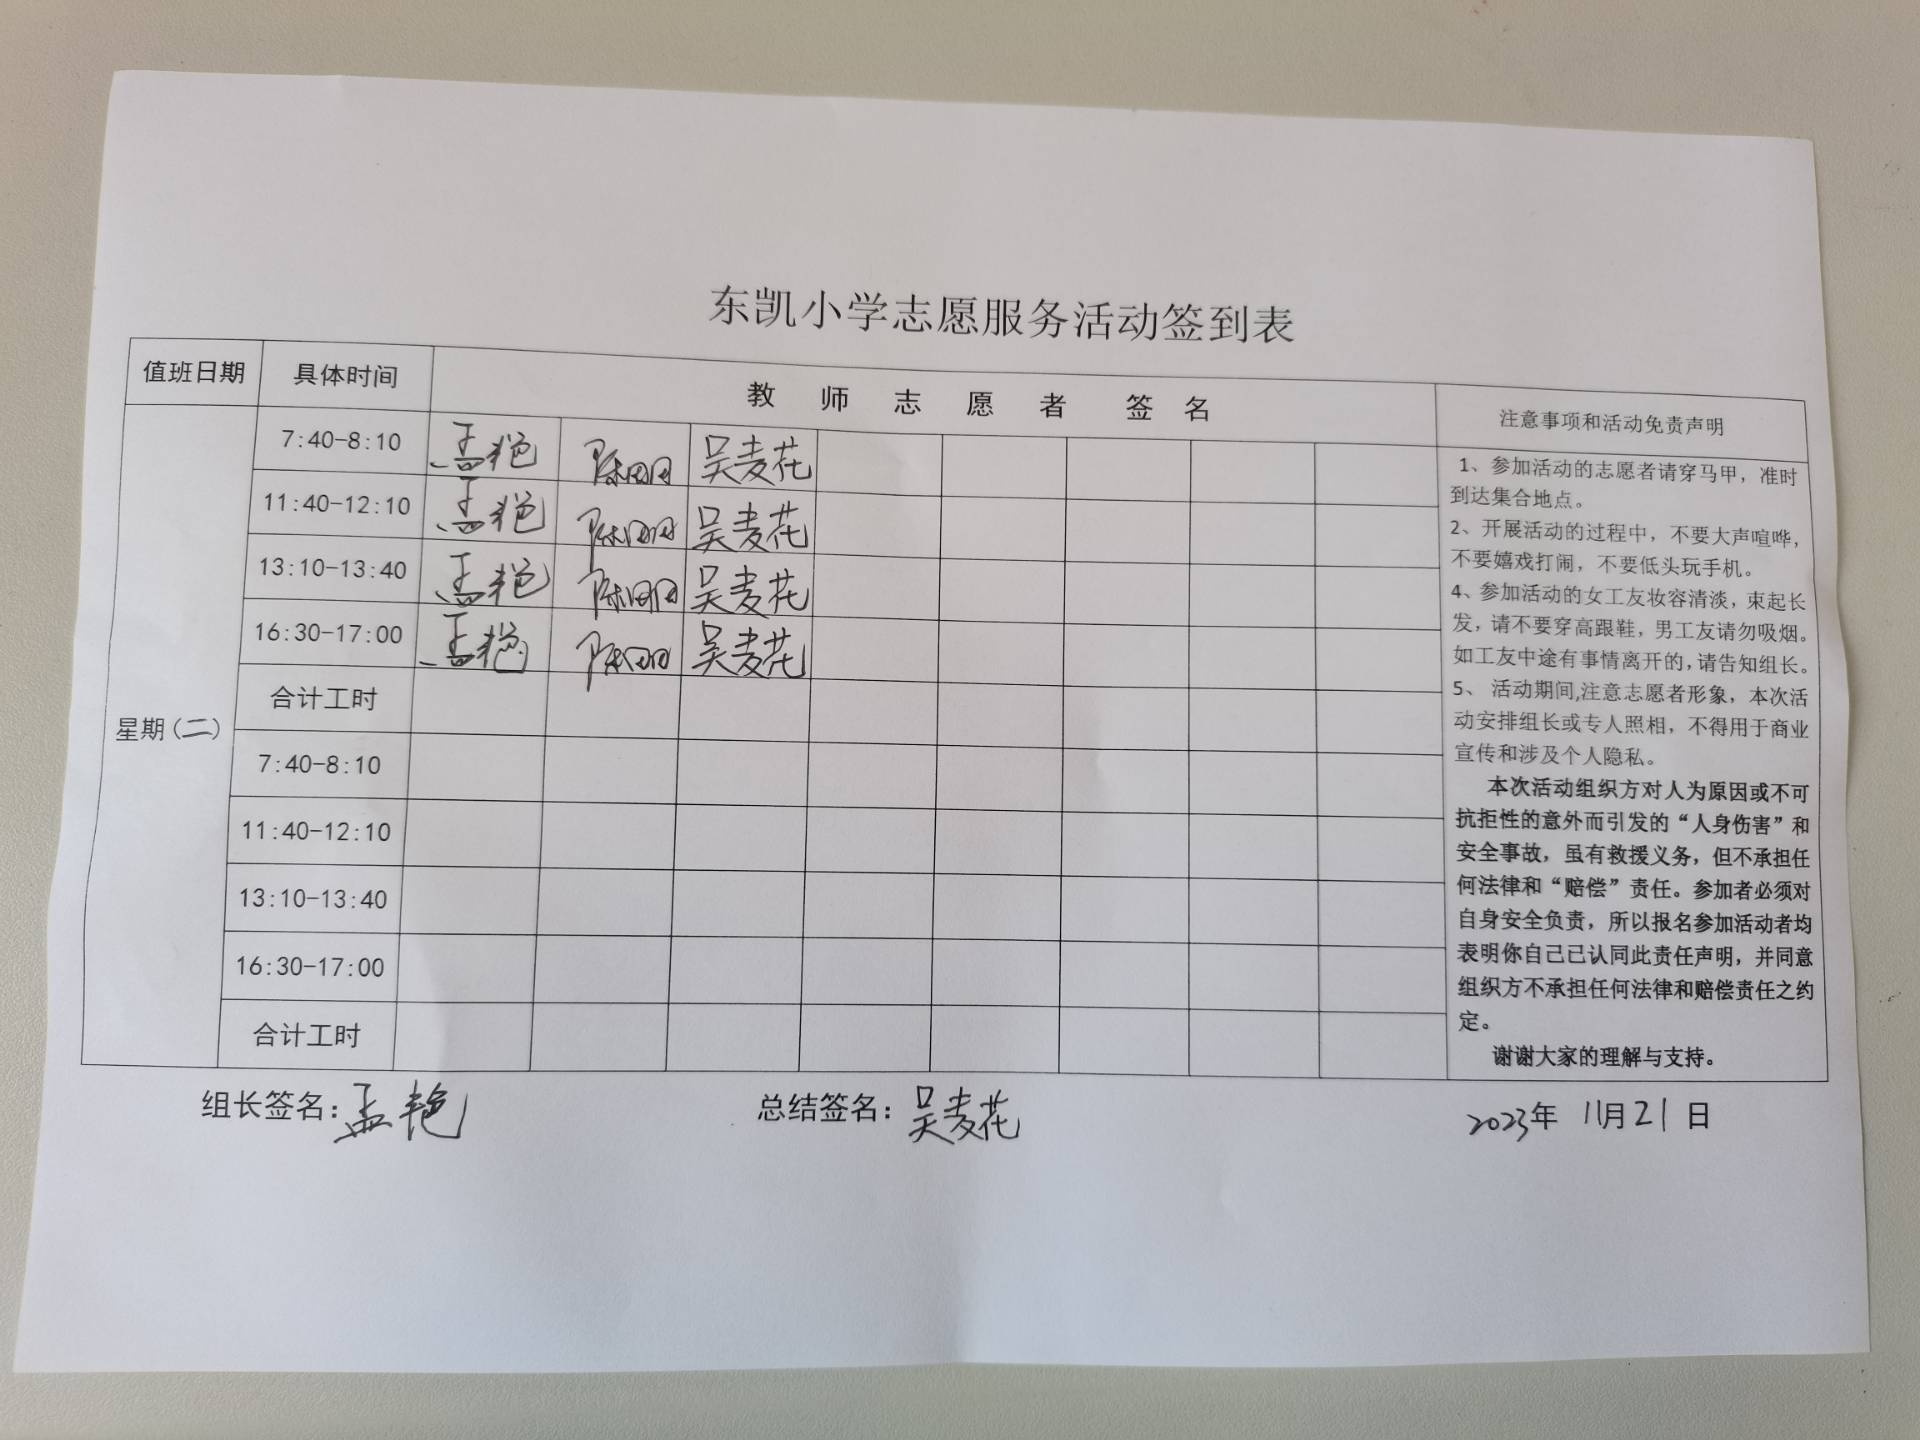 东凯小学志愿服务活动签到表
值班日期 具体时间 教师志愿者签名 注意事项和活动免责声明
星期(二)
7:40-8:10 孟艳 陈 吴麦花
11:40-12:10 孟艳 陈 吴麦花
13:10-13:40 孟艳 陈 吴麦花
16:30-17:00 孟艳 陈 吴麦花
合计工时
7:40-8:10
11:40-12:10
13:10-13:40
16:30-17:00
合计工时
1、参加活动的志愿者请穿马甲，准时
到达集合地点。
2、开展活动的过程中，不要大声喧哗，
不要嬉戏打闹，不要低头玩手机。
4、参加活动的女工友妆容清淡，束起长
发，请不要穿高跟鞋，男工友请勿吸烟。
如工友中途有事情离开的，请告知组长。
5、 活动期间,注意志愿者形象，本次活
动安排组长或专人照相，不得用于商业
宣传和涉及个人隐私。
本次活动组织方对人为原因或不可
抗拒性的意外而引发的“人身伤害”和
安全事故，虽有救援义务，但不承担任
何法律和“赔偿”责任。参加者必须对
自身安全负责，所以报名参加活动者均
表明你自己已认同此责任声明，并同意
组织方不承担任何法律和赔偿责任之约
定。
谢谢大家的理解与支持。
组长签名：孟艳 总结签名：吴麦花 2023年 11月21日